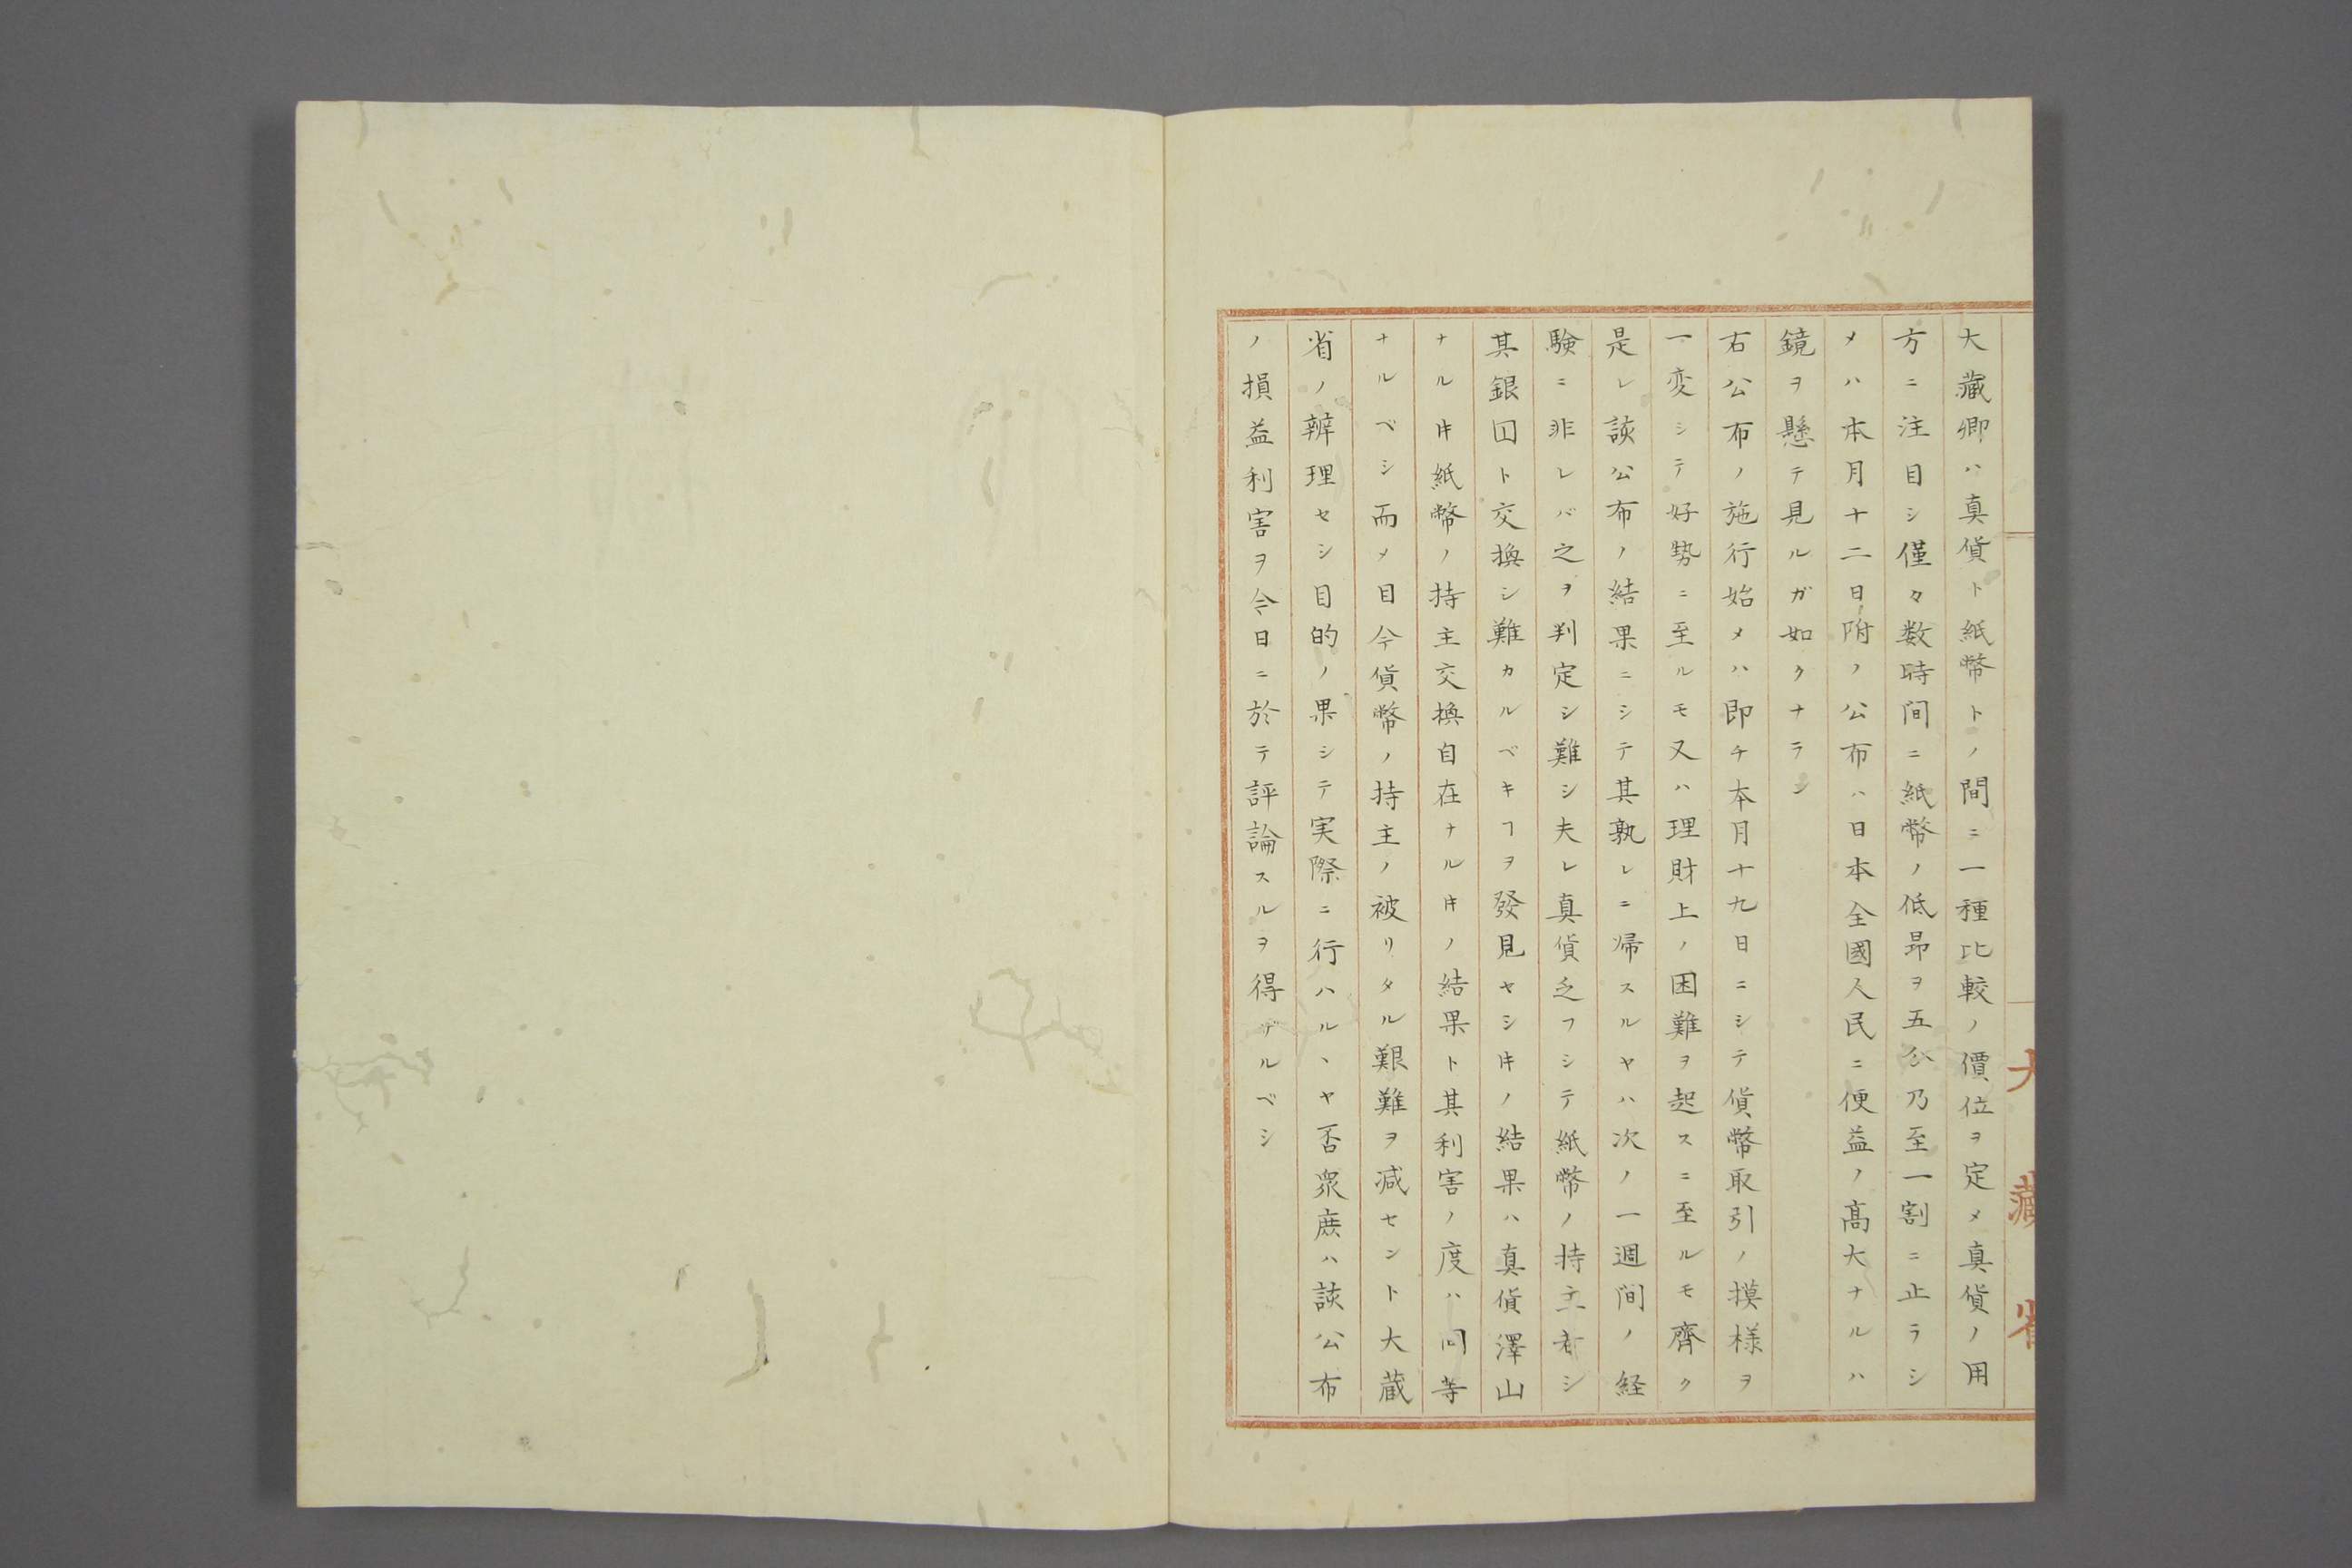 大藏卿ハ真貨ト紙幣トノ間ニ一種比較ノ價位ヲ定メ真貨ノ用
方ニ注目シ僅々数時間ニ紙幣ノ低昂ヲ五分乃至一割ニ止ラシ
メハ本月十二日附ノ公布ハ日本全國人民ニ便益ノ髙大ナルハ
鏡ヲ懸テ見ルガ如クナラン
右公布ノ施行始メハ即チ本月十九日ニシテ貨幣取引ノ摸様ヲ
一変シテ好勢ニ至ルモ又ハ理財上ノ困難ヲ起スニ至ルモ齊ク
是レ該公布ノ結果ニシテ其孰レニ帰スルヤハ次ノ一週間ノ経
験ニ非レバ之ヲ判定シ難シ夫レ真貨乏フシテ紙幣ノ持主者シ
其銀囙ト交換シ難カルベキヿヲ發見ヤシ𪜈ノ結果ハ真貨澤山
ナル𪜈紙幣ノ持主交換自在ナル𪜈ノ結果ト其利害ノ度ハ同等
ナルベシ而メ目今貨幣ノ持主ノ被リタル艱難ヲ減セント大蔵
省ノ辨理セシ目的ノ果シテ実際ニ行ハルヽヤ否衆庶ハ該公布
ノ損益利害ヲ今日ニ於テ評論スルヲ得ザルベシ
大藏省